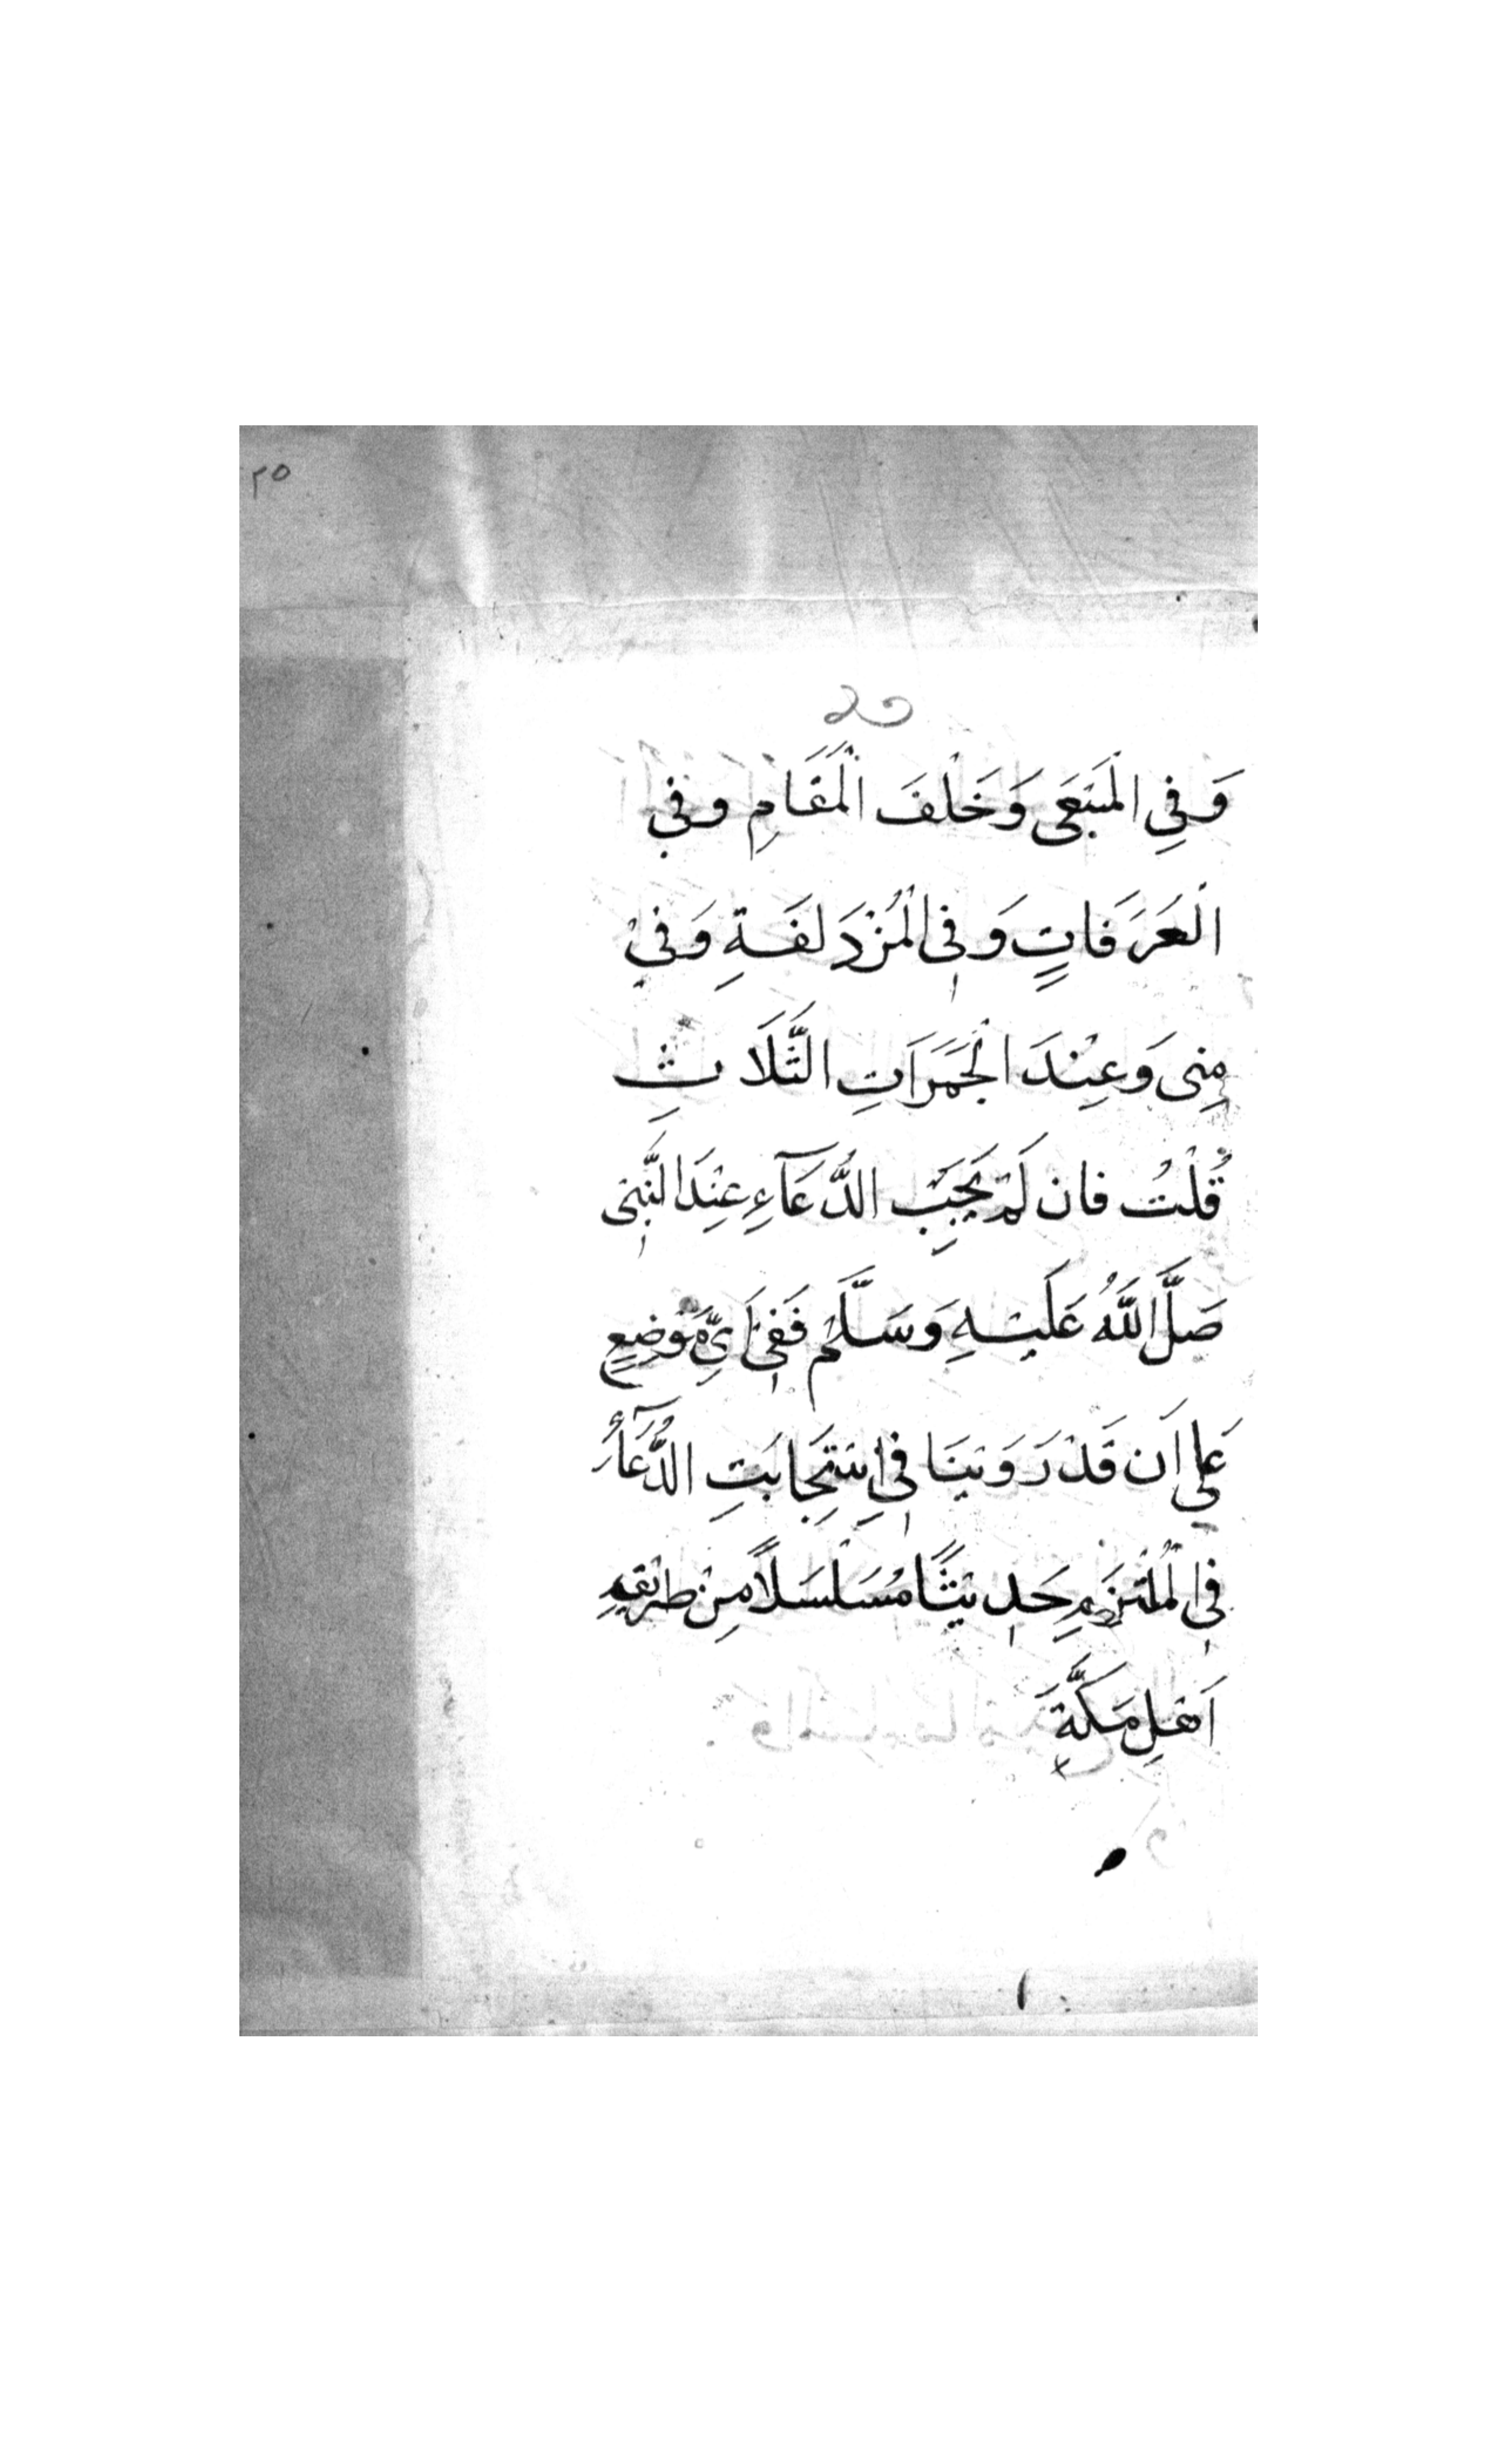 ٢٥
وَفِي الْمَسْعَى وَخَلْفَ الْمَقَامِ وفي
الْعَرَفَاتٍ وَفِى الْمُزْدَلِفَةِ وَفيْ
مِنى وَعِنْدَ الْجَمَرَاتِ الثَّلَاثِ
قُلْتُ فان لَمْ يَجِبْ الدُّعَآءِ عِنْدَ النَّبِى
صَلَّ اللَّهُ عَلَيْهِ وَسَلَّمْ فَفِى اَىِّ مَوْضِعٍ
عَلي اَن قَدْ رَوَيْنَا فِى اِسْتِجَابَتِ الدُّعَآءُ
فِى الْمُلْتَزَمِ حَدِيْثًا مُسَلْسَلاً مِنْ طَرْيقِ
اَهْلِ مَكَّةِ